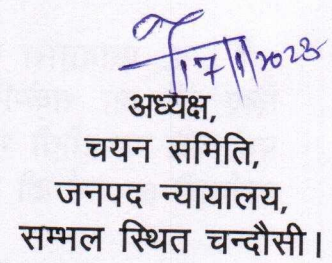 17/1/2023
अध्यक्ष,
चयन समिति,
जनपद न्यायालय,
सम्भल स्थित चन्दौसी।